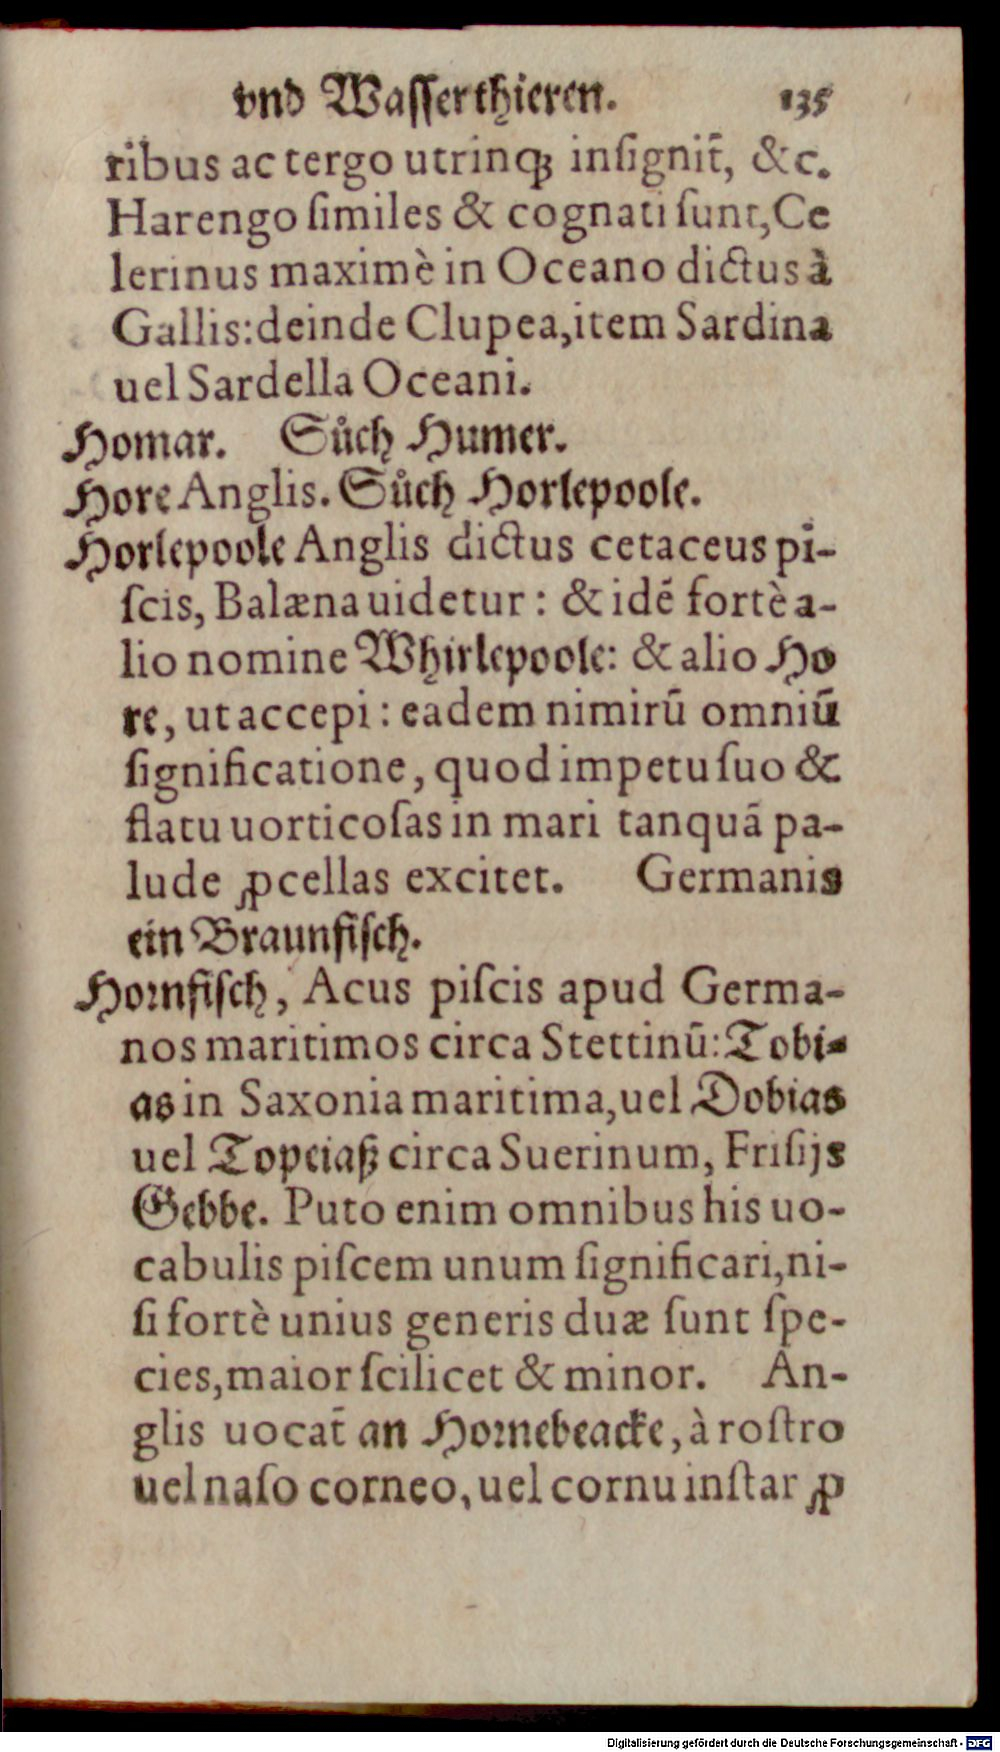 vnd Wasserthieren. 135
ribus ac tergo utrinq; inſignit̃, &c.
Harengo ſimiles & cognati ſunt, Ce
lerinus maximè in Oceano dictus à
Gallis: deinde Clupea, item Sardina
uel Sardella Oceani.
Homar. Sůch Humer.
Hore Anglis. Sůch Horlepoole.
Horlepoole Anglis dictus cetaceus pi-
ſcis, Balæna uidetur: & idẽ fortè a-
lio nomine Whirlepoole: & alio Ho
re, ut accepi: eadem nimirũ omniũ
ſignificatione, quod impetu ſuo &
flatu uorticoſas in mari tanquã pa-
lude ꝓcellas excitet. Germanis
ein Braunfiſch.
Hornfiſch, Acus piſcis apud Germa-
nos maritimos circa Stettinũ: Tobi-
as in Saxonia maritima, uel Dobias
uel Topeiaß circa Suerinum, Friſijs
Gebbe. Puto enim omnibus his uo-
cabulis piſcem unum ſignificari, ni-
ſi fortè unius generis duæ ſunt ſpe-
cies, maior ſcilicet & minor. An-
glis uocat̃ an Hornebeacke, à roſtro
uel naſo corneo, uel cornu inſtar ꝓ
Digitalisierung gefördert durch die Deutsche Forschungsgemeinschaft - DFG